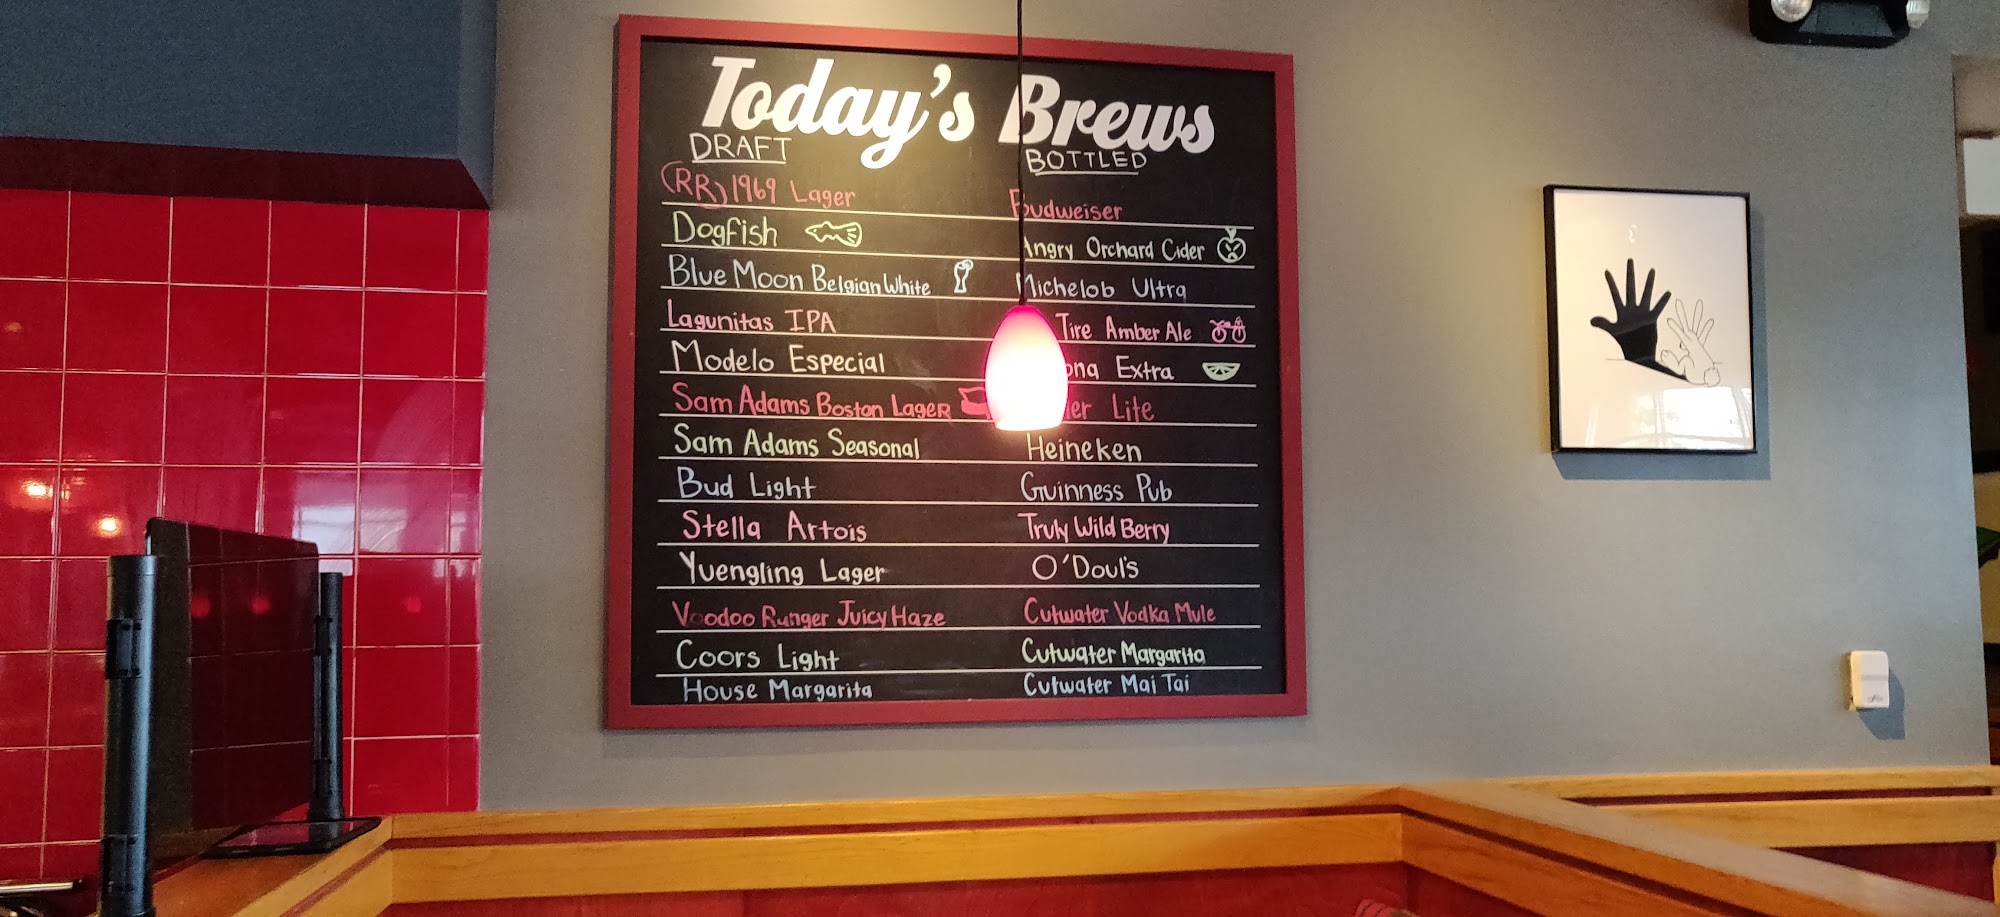 Today's Brews
DRAFT
(RR) 1969 Lager
Dogfish
Blue Moon Belgian White
Lagunitas IPA
Modelo Especial
Sam Adams Boston Lager
Sam Adams Seasonal
Bud Light
Stella Artois
Yuengling Lager
Voodoo Ranger Juicy Haze
Coors Light
House Margarita
BOTTLED
Budweiser
Angry Orchard Cider
Michelob Ultra
Tire Amber Ale
Extra
Lite
Heineken
Guinness Pub
Truly Wild Berry
O'Doul's
Cutwater Vodka Mule
Cutwater Margarita
Cutwater Mai Tai